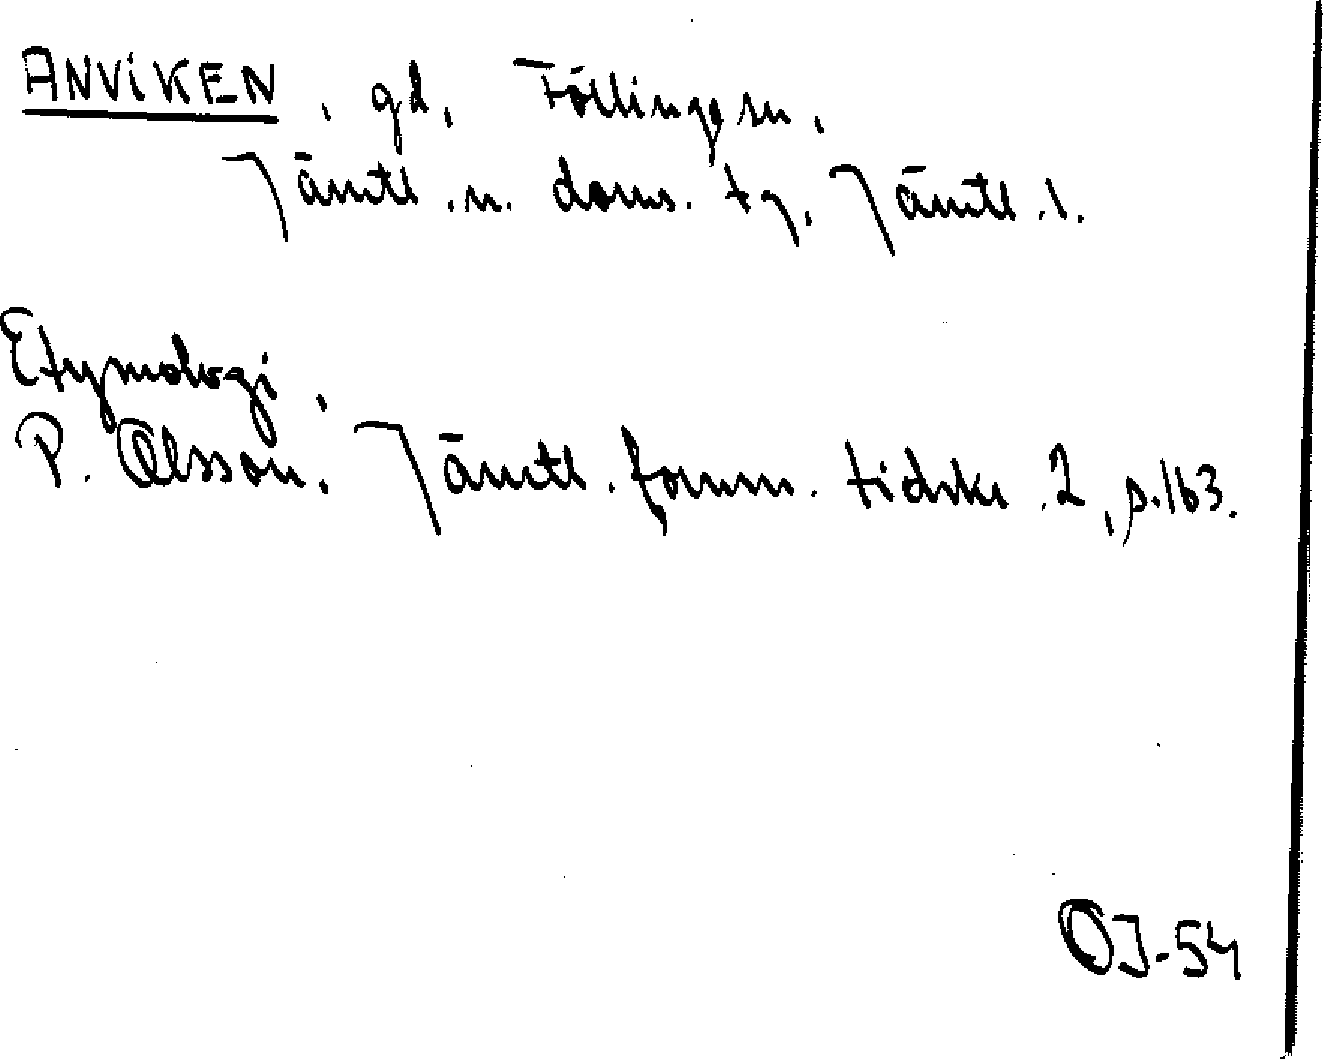 ANVIKEN, gd, Föllinge sn,
Jämtl. n. doms. tg, Jämtl. l.
Etymologi,
P. Olsson. Jämtl. fornm. tidskr. 2, s. 163.
OJ-54